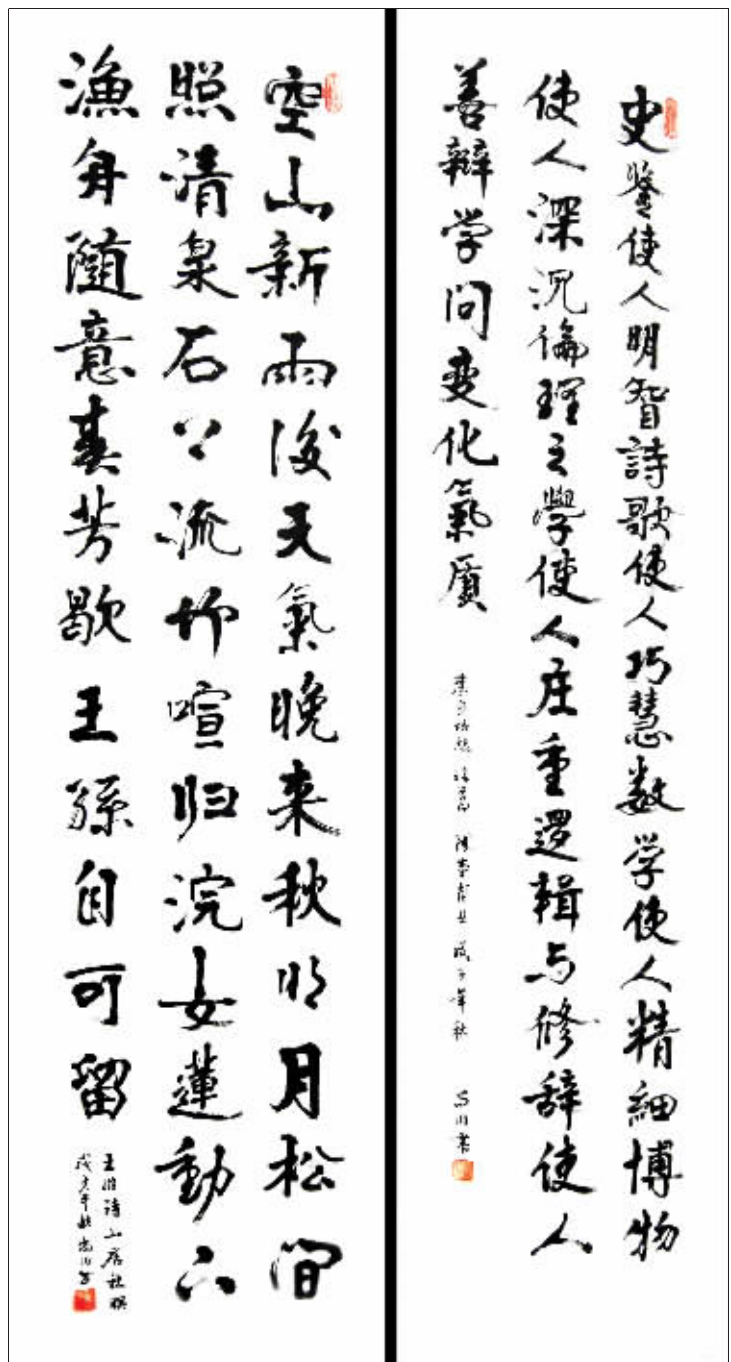 史鑒使人明智詩歌使人巧慧数学使人精細博物
使人深沉倫理之學使人庄重邏輯与修辞使人
善辯学问变化氣质
戊子年秋
空山新雨後天氣晚来秋明月松间
照清泉石上流竹喧归浣女蓮動下
漁舟随意春芳歇王孫自可留
王维诗山居秋暝